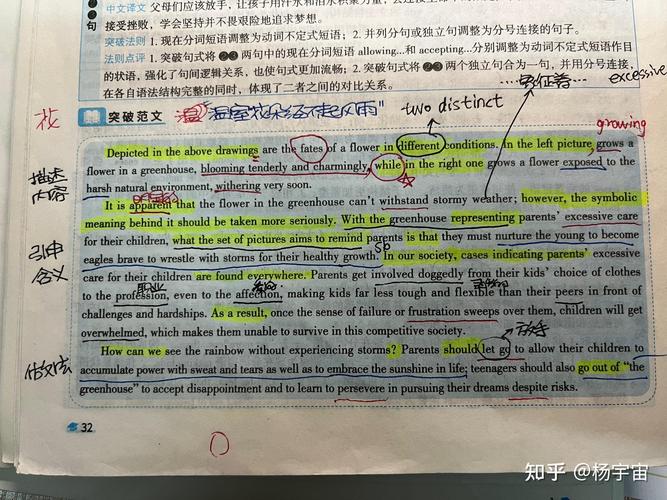 中文译文 父母们应该放手，让孩子用汗水和泪水积聚力量，
接受挫败，学会坚持并不畏艰险地追求梦想。
突破法则 1. 现在分词短语调整为动词不定式短语；2. 并列分句或独立句调整为分号连接的句子。
法则点评 1. 突破句式将❷❸两句中的现在分词短语 allowing...和 accepting...分别调整为动词不定式短语作目
的状语，强化了句间逻辑关系，也使句式更加流畅；2. 突破句式将❷❸两个独立句合为一句，并用分号连接，
在各自语法结构完整的同时，体现了二者之间的对比关系。
excessive
突破范文 "温室花朵经不起风雨" two distinct
growing
Depicted in the above drawings are the fates of a flower in different conditions. In the left picture grows a
flower in a greenhouse, blooming tenderly and charmingly, while in the right one grows a flower exposed to the
harsh natural environment, withering very soon.
描述
内容
It is apparent that the flower in the greenhouse can't withstand stormy weather; however, the symbolic
meaning behind it should be taken more seriously. With the greenhouse representing parents' excessive care
for their children, what the set of pictures aims to remind parents is that they must nurture the young to become
sb
eagles brave to wrestle with storms for their healthy growth. In our society, cases indicating parents' excessive
引申
含义
care for their children are found everywhere. Parents get involved doggedly from their kids' choice of clothes
职业
to the profession, even to the affection, making kids far less tough and flexible than their peers in front of
challenges and hardships. As a result, once the sense of failure or frustration sweeps over them, children will get
overwhelmed, which makes them unable to survive in this competitive society.
放手
How can we see the rainbow without experiencing storms? Parents should let go to allow their children to
accumulate power with sweat and tears as well as to embrace the sunshine in life; teenagers should also go out of "the
greenhouse" to accept disappointment and to learn to persevere in pursuing their dreams despite risks.
32
知乎 @杨宇宙